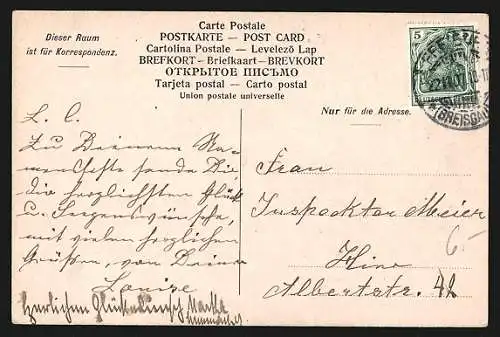 Dieser Raum
ist für Korrespondenz.
Carte Postale
POSTKARTE — POST CARD
Cartolina Postale — Levelező Lap
BREFKORT - Briefkaart - BREVKORT
ОТКРЫТОЕ ПИСЬМО
Tarjeta postal — Carto postal
Union postale universelle
Nur für die Adresse.
5
(BREISGAU)
L. C.
Zu Deinem Na-
mensfeste sende Dir
die herzlichsten Glück
u. Segenswünsche,
mit vielen herzlichen
Grüßen, von Deiner
Louise
Herzlichen Glückwunsch
Frau
Inspecktor Meier
Hier
Albertstr. 42
6-